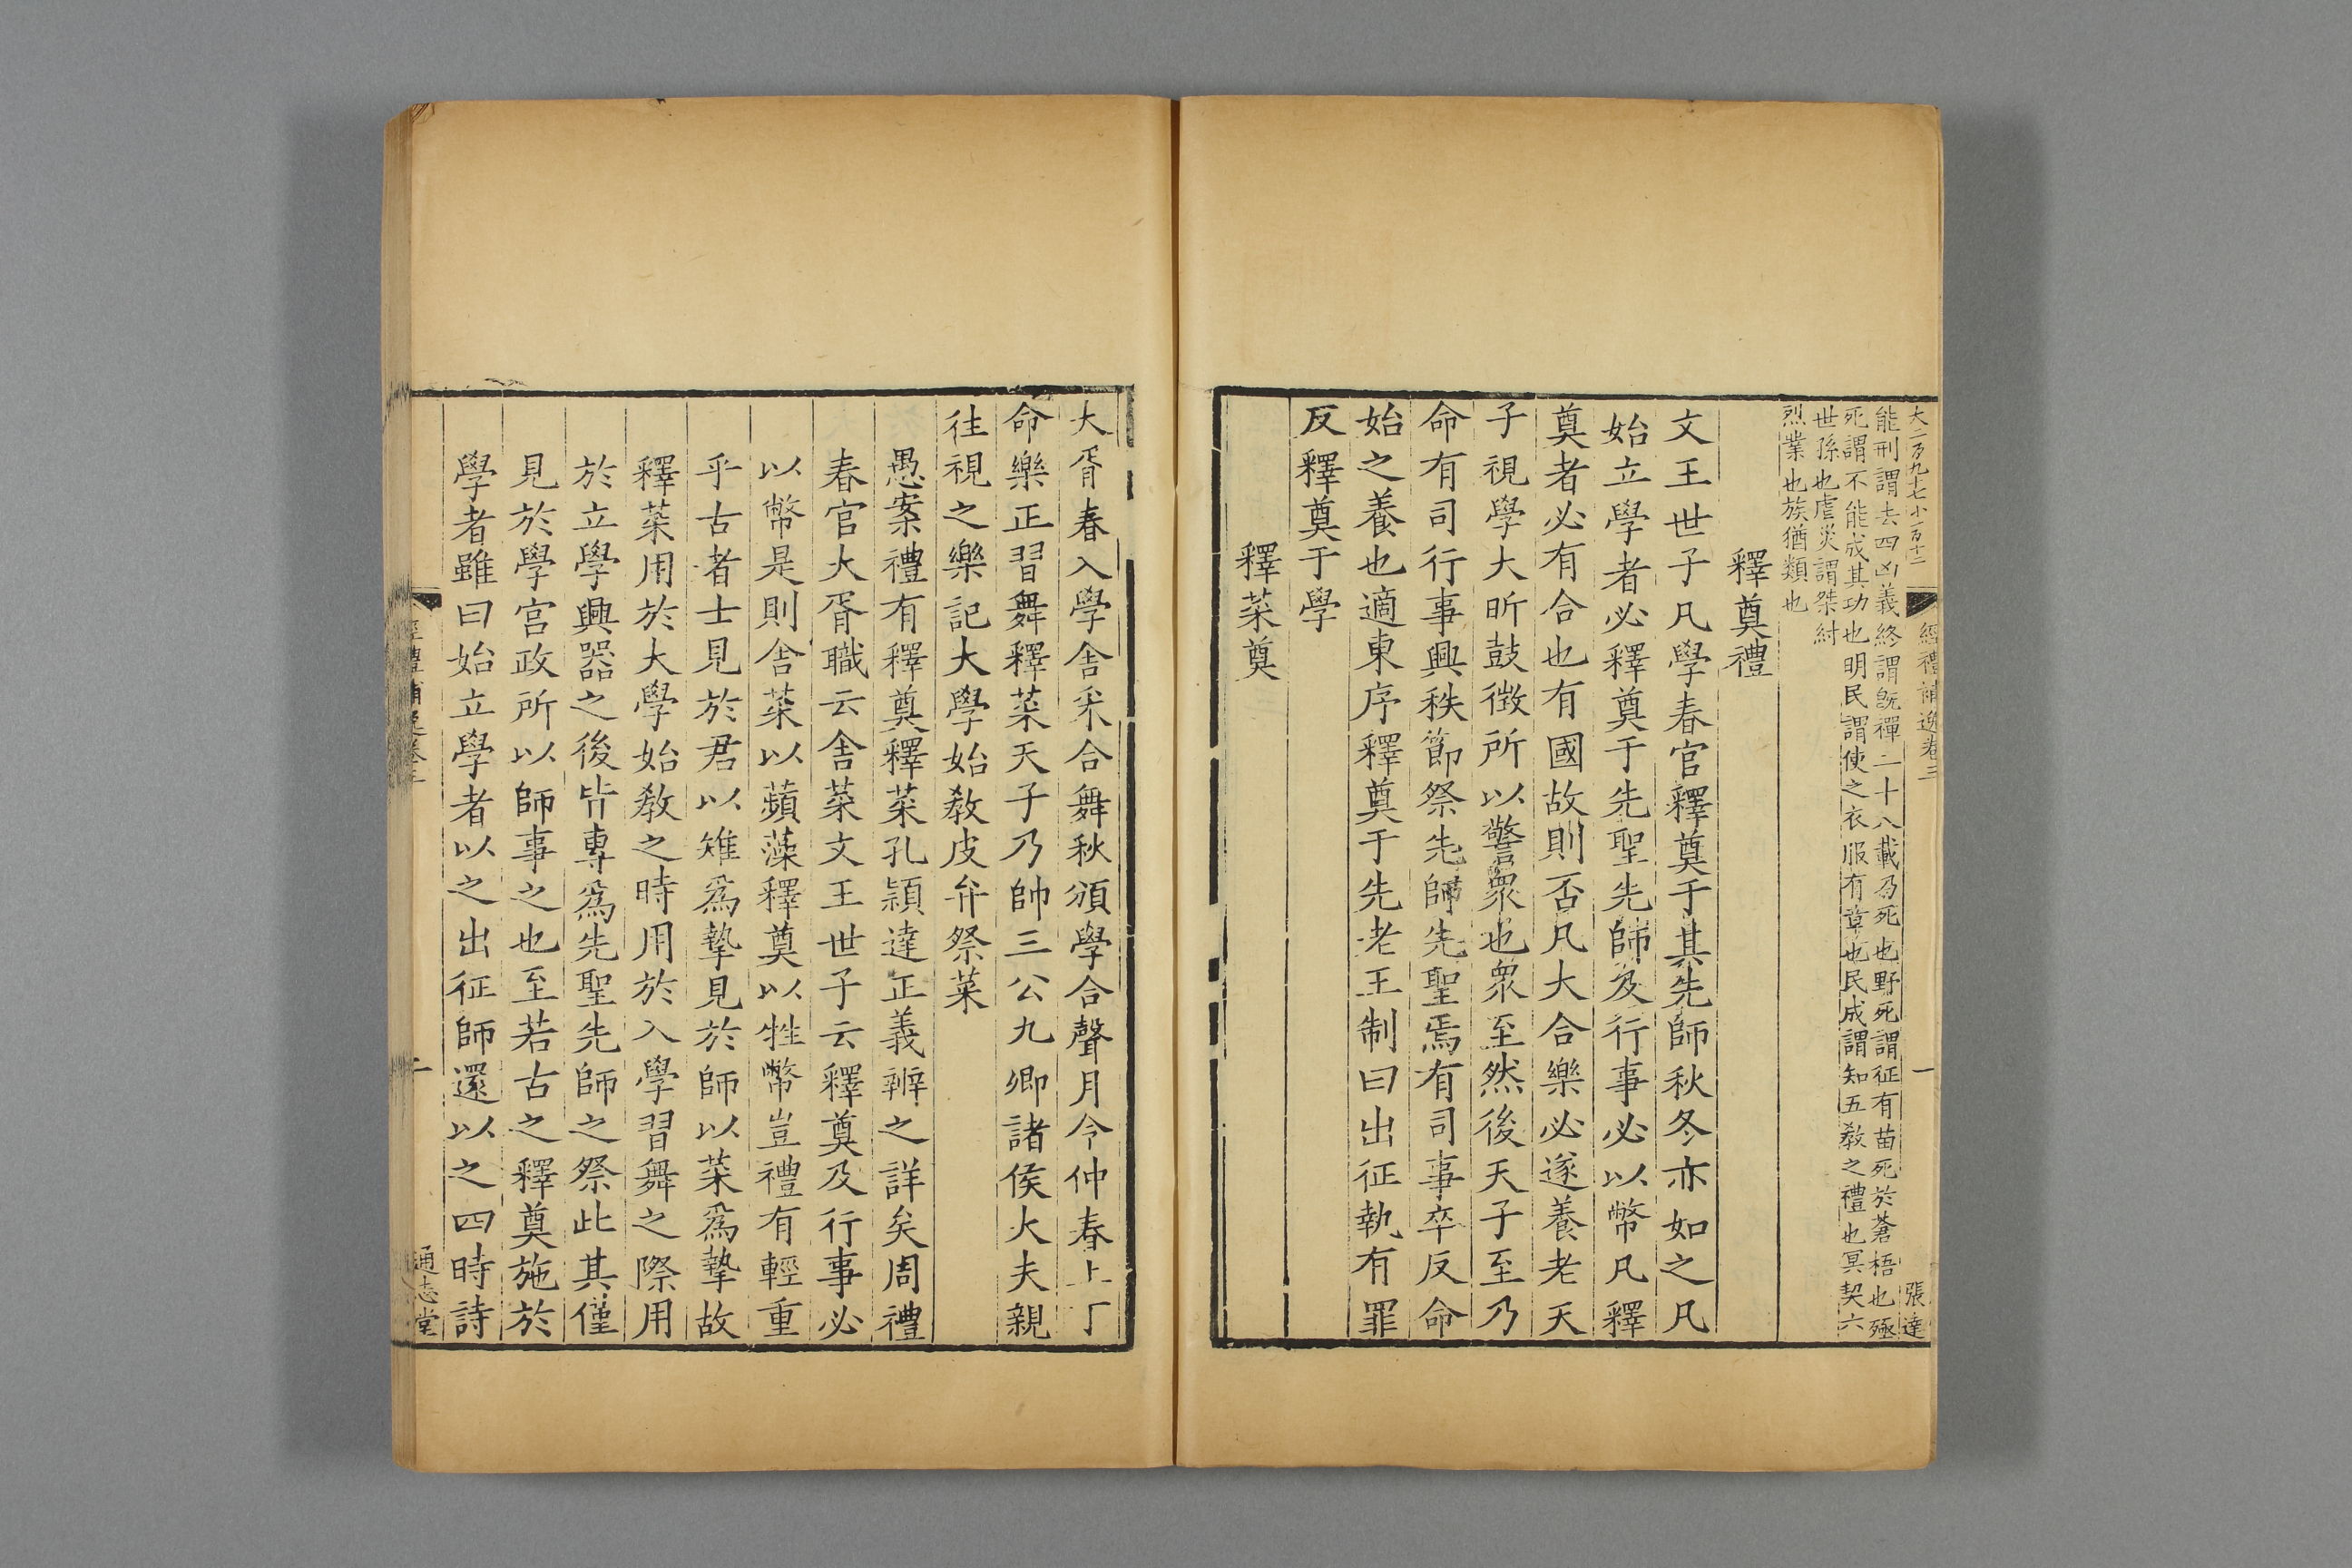 大二百九十七小一百十二
經禮補逸卷三
一
張達
能刑謂去四凶義終謂旣禪二十八載乃死也野死謂征有苗死於蒼梧也殛
死謂不能成其功也明民謂使之衣服有章也民成謂知五教之禮也冥契六
世孫也虐災謂桀紂
烈業也族猶類也
釋奠禮
文王世子凡學春官釋奠于其先師秋冬亦如之凡
始立學者必釋奠于先聖先師及行事必以幣凡釋
奠者必有合也有國故則否凡大合樂必遂養老天
子視學大昕鼓徵所以警衆也衆至然後天子至乃
命有司行事興秩節祭先師先聖焉有司事卒反命
始之養也適東序釋奠于先老王制曰出征執有罪
反釋奠于學
釋菜奠
大胥春入學舍采合舞秋頒學合聲月令仲春上丁
命樂正習舞釋菜天子乃帥三公九卿諸侯大夫親
徃視之樂記大學始教皮弁祭菜
愚案禮有釋奠釋菜孔頴達正義辨之詳矣周禮
春官大胥職云舍菜文王世子云釋奠及行事必
以幣是則舍菜以蘋藻釋奠以牲幣豈禮有輕重
乎古者士見於君以雉爲摯見於師以菜爲摯故
釋菜用於大學始教之時用於入學習舞之際用
於立學興器之後皆專爲先聖先師之祭此其僅
見於學官政所以師事之也至若古之釋奠施於
學者雖曰始立學者以之出征師還以之四時詩
經禮補逸卷三
二
通志堂